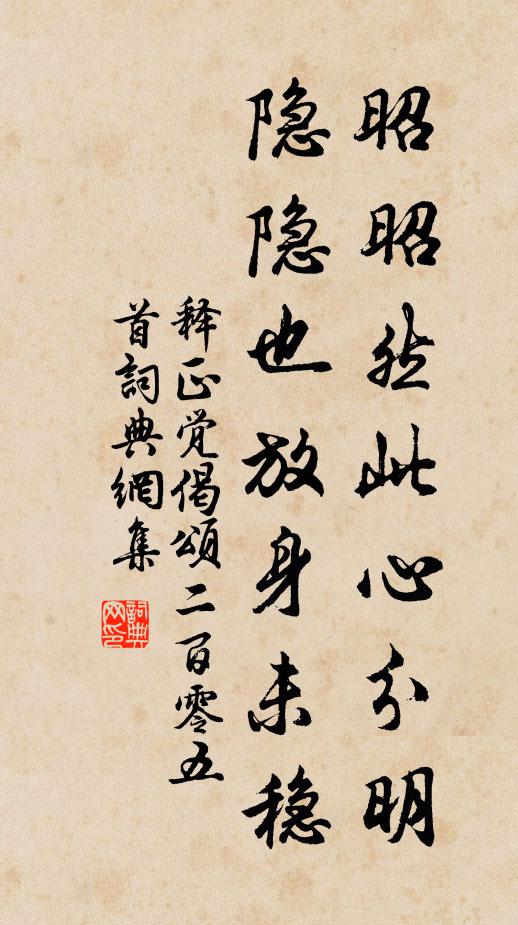 昭昭然此心分明
隐隐也放身未稳
释正觉偈頌二百零五
首詞典網集
詞典网印